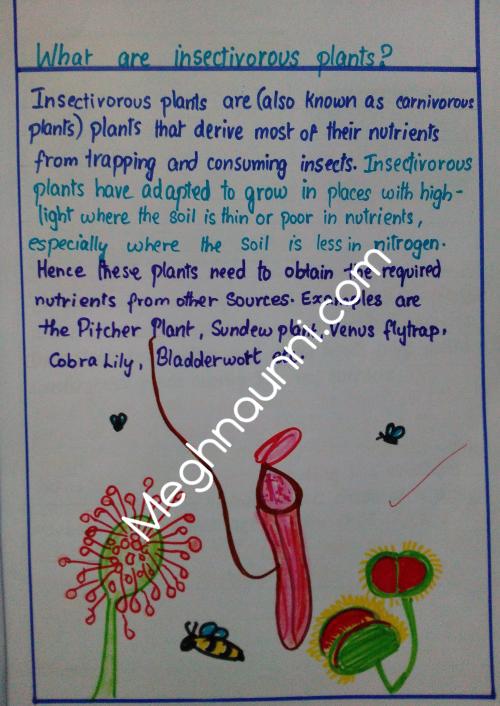 What are insectivorous plants?
Insectivorous plants are (also known as carnivorous
plants) plants that derive most of their nutrients
from trapping and consuming insects. Insectivorous
plants have adapted to grow in places with high-
light where the soil is thin or poor in nutrients,
especially where the soil is less in nitrogen.
Hence these plants need to obtain the required
nutrients from other sources. Examples are
the Pitcher Plant, Sundew plant, Venus flytrap,
Cobra Lily, Bladderwort etc.
Meghnaunni.com